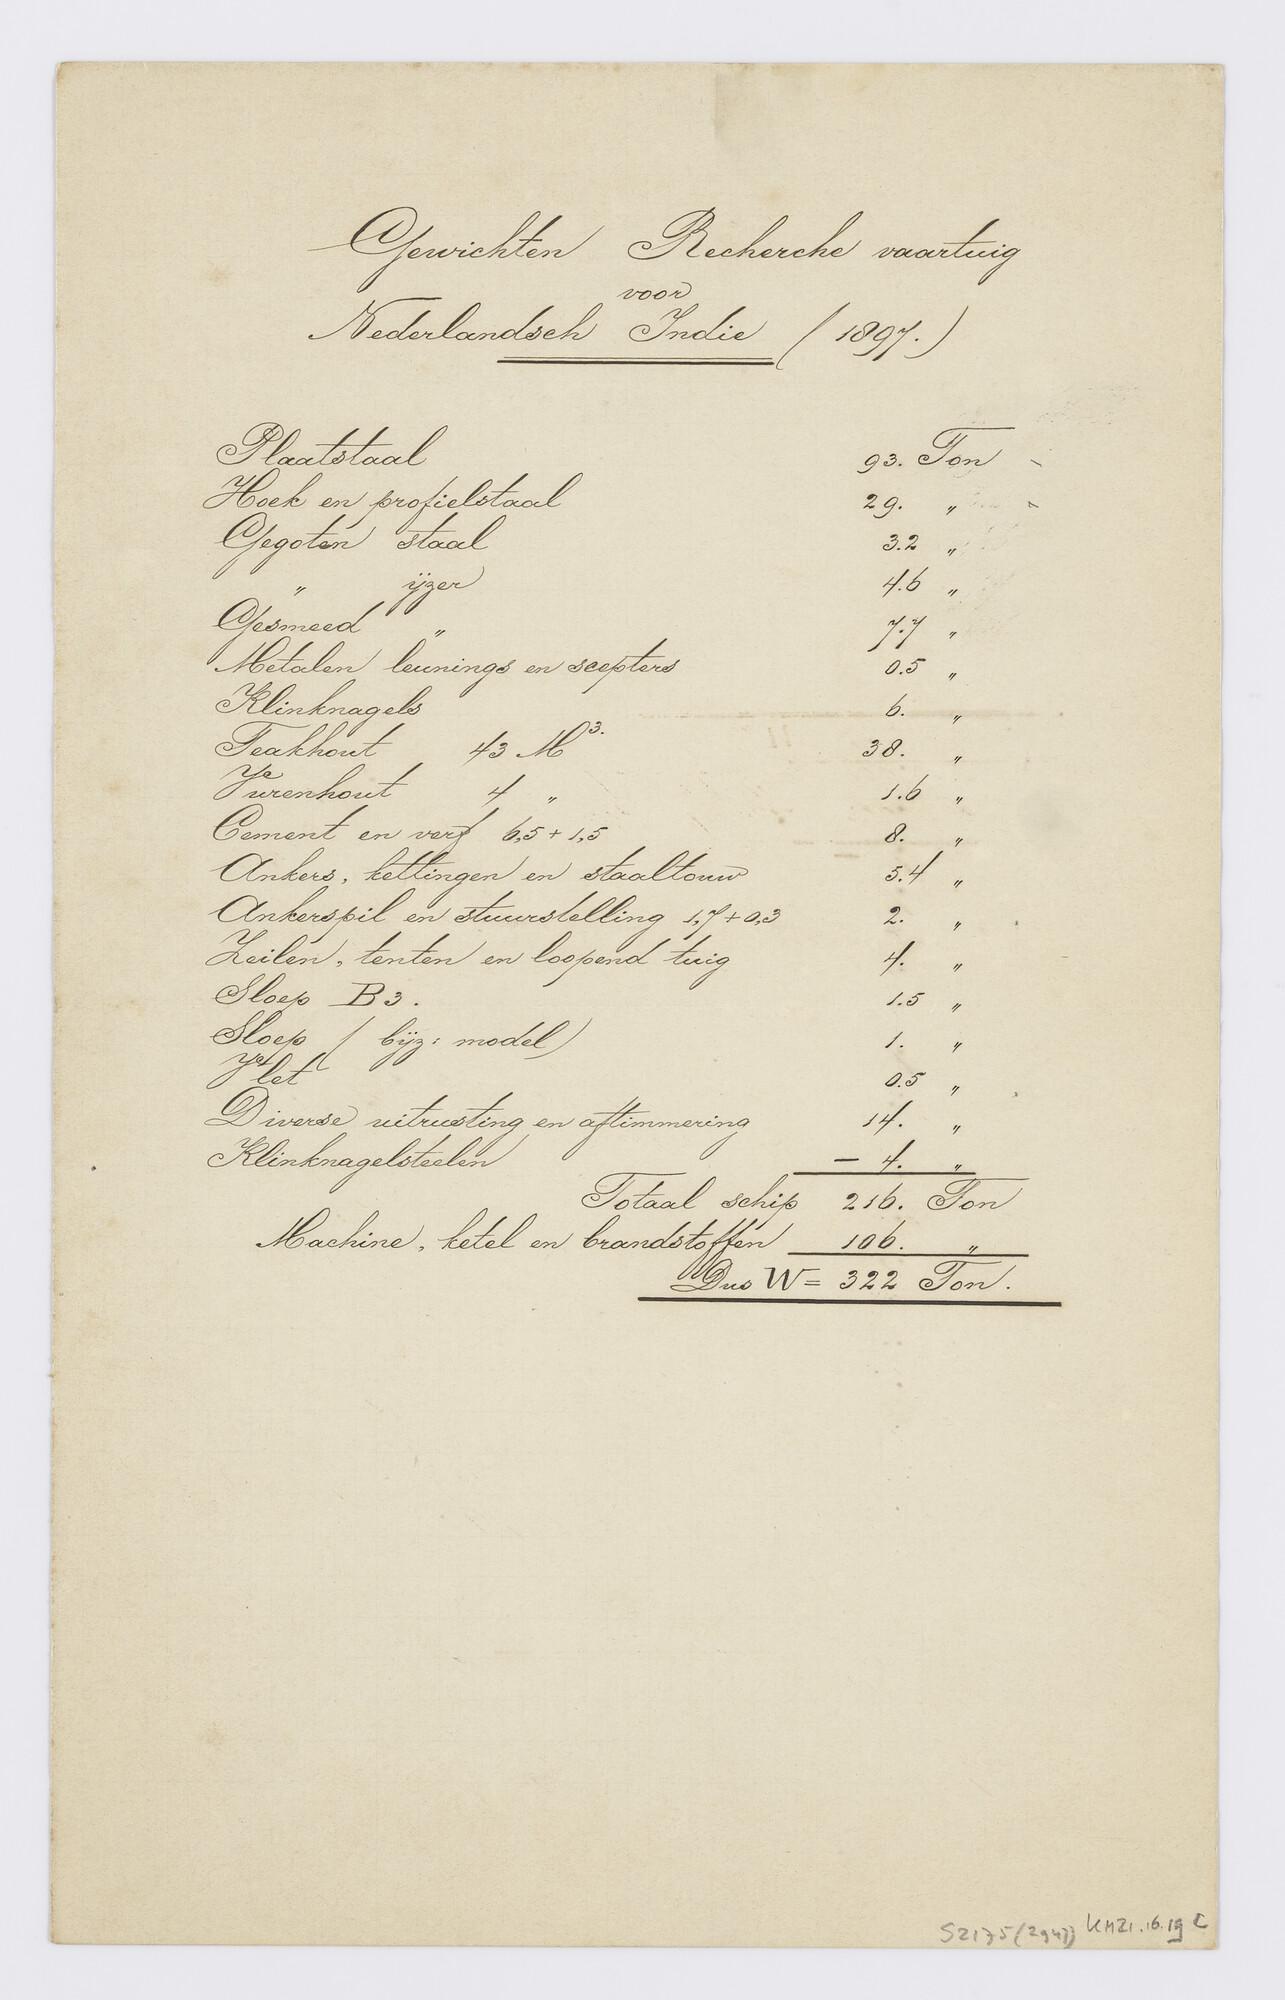 Gewichten Recherche vaartuig
voor
Nederlandsch Indie (1897.)
Plaatstaal 93. Ton
Hoek en profielstaal 29. "
Gegoten staal 3.2 "
" ijzer 4.6 "
Gesmeed " 7.7 "
Metalen leunings en scepters 0.5 "
Klinknagels 6. "
Teakhout 43 M3. 38. "
Vurenhout 4 " 1.6 "
Cement en verf 6,5 + 1,5 8. "
Ankers, kettingen en staaltouw 5.4 "
Ankerspil en stuurstelling 1,7 + 0,3 2. "
Zeilen, tenten en loopend tuig 4. "
Sloep B3. 1.5 "
Sloep (bijz: model) 1. "
Vlet 0.5 "
Diverse uitrusting en aftimmering 14. "
Klinknagelsteelen - 4. "
Totaal schip 216. Ton
Machine, ketel en brandstoffen 106. "
Dus W = 322 Ton.
S2175(2947) KMZI.16.19 C